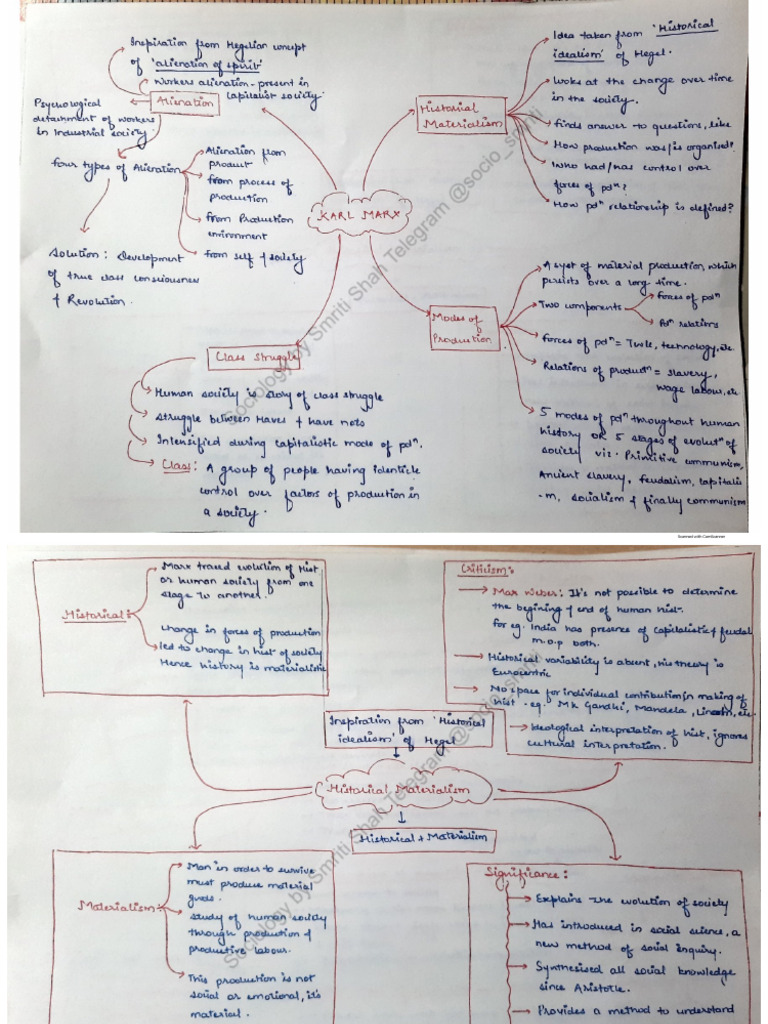 Inspiration from Hegelian concept
of 'alienation of spirit'
Workers alienation - present in
capitalist society.
Alienation
Psychological
detachment of workers
in Industrial society.
four types of Alienation
Alienation from
product
from process of
production
from Production
environment
from self & society
Solution: Development
of true class consciousness
& Revolution.
KARL MARX
Historial
Materialism
Idea taken from 'Historical
idealism' of Hegel.
looks at the change over time
in the society.
finds answer to questions, like
How production was/is organised?
Who had/has control over
forces of pdⁿ?
How pdⁿ relationship is defined?
Modes of
Production
A syst of material production, which
persists over a long time.
Two components
forces of pdⁿ
Pdⁿ relations
Forces of pdⁿ = Tools, technology, etc.
Relations of productⁿ = slavery,
wage labour, etc
5 modes of pdⁿ throughout human
history OR 5 stages of evolutⁿ of
society viz. Primitive communism,
Ancient slavery, feudalism, capitalis
-m, socialism & finally communism
Class Struggle
Human society is story of class struggle
Struggle between Haves & have nots
Intensified during capitalistic mode of pdⁿ.
Class: A group of people having identicle
control over factors of production in
a society.
Sociology by Smriti Shah Telegram @socio_smriti
Scanned with CamScanner
Historical:
Marx traced evolution of Hist
or human society from one
stage to another.
Change in forces of production
led to change in hist of society
Hence history is materialistic
Criticism:
Max Weber: It's not possible to determine
the begining & end of human hist.
for eg. India has presence of capitalistic & feudal
m.o.p both.
Historical variability is absent, his theory is
Eurocentric
No space for individual contribution in making of
hist. eg. M K Gandhi, Mandela, Lincoln, etc.
Ideological interpretation of hist, ignores
cultural interpretation.
Inspiration from 'Historical
idealism' of Hegel
Historical Materialism
Historical + Materialism
Materialism:
Man in order to survive
must produce material
goods.
Study of human society
through production &
productive labour.
This production is not
social or emotional, it's
material.
Significance:
Explains the evolution of society
Has introduced in social science, a
new method of social inquiry.
Synthesised all social knowledge
since Aristotle.
Provides a method to understand
Sociology by Smriti Shah Telegram @socio_smriti